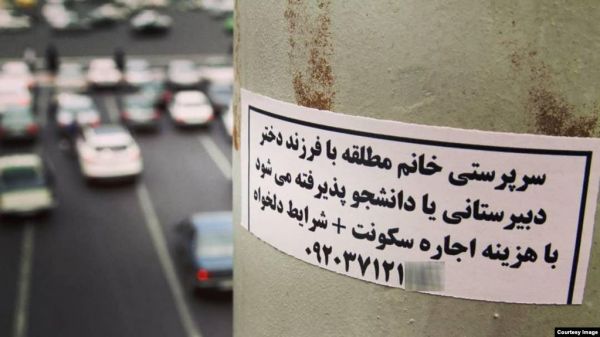 سرپرستی خانم مطلقه با فرزند دختر
دبیرستانی یا دانشجو پذیرفته می شود
با هزینه اجاره سکونت + شرایط دلخواه
۰۹۲۰۳۷۱۲۱
Courtesy Image